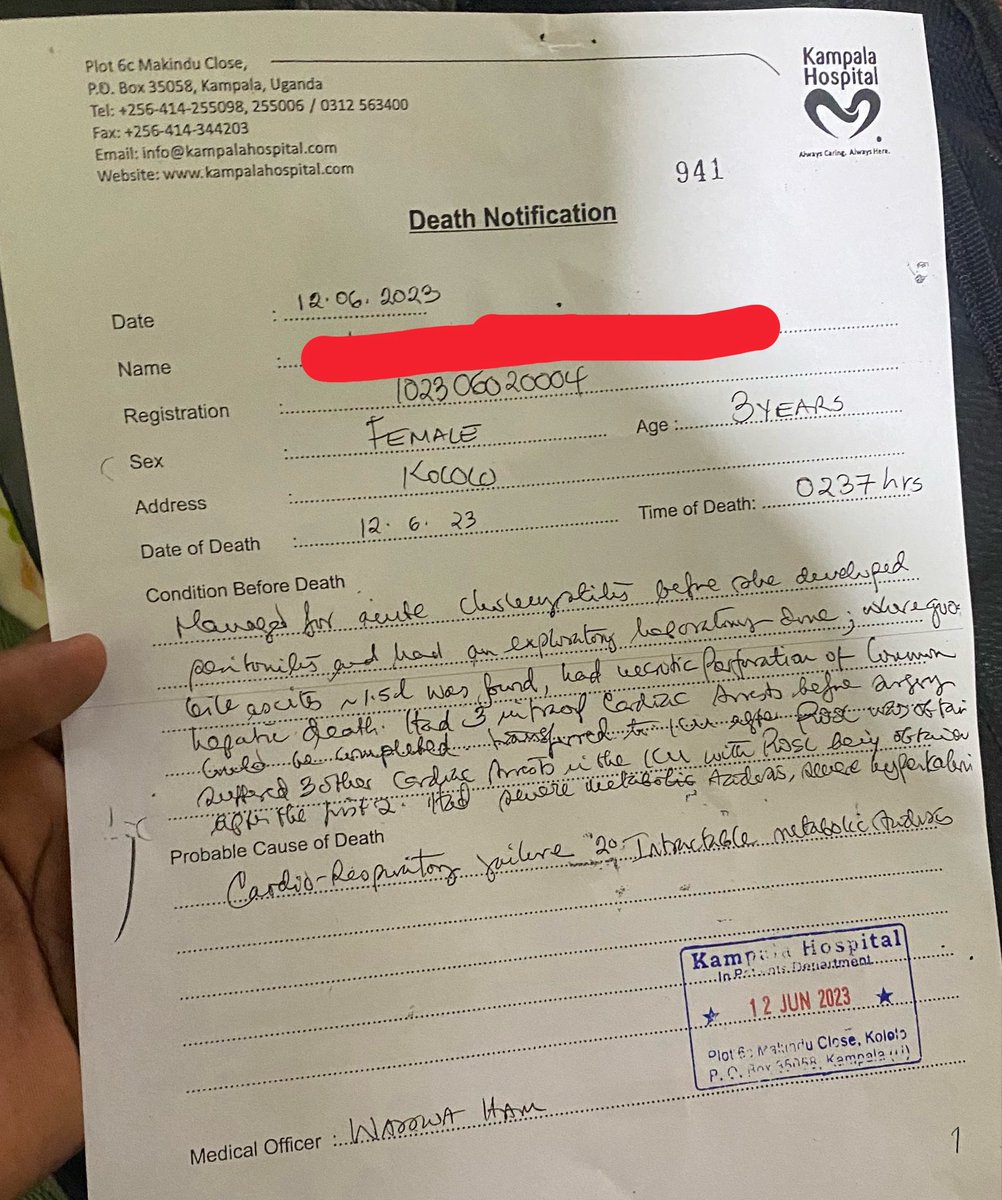 Plot 6c Makindu Close,
P.O. Box 35058, Kampala, Uganda
Tel: +256-414-255098, 255006 / 0312 563400
Fax: +256-414-344203
Email: info@kampalahospital.com
Website: www.kampalahospital.com
Kampala
Hospital
Always Caring. Always Here.
941
Death Notification
Date : 12.06.2023
Name :
Registration : 102306020004
Sex : FEMALE Age : 3 YEARS
Address : KOLOLO
Date of Death : 12. 6. 23 Time of Death: 0237 hrs
Condition Before Death
Managed for acute cholecystitis before she developed
peritonitis and had an exploratory laparatomy done; where
bile ascites ~1.5l was found, had necrotic perforation of Common
hepatic Had 3 intraop Cardiac Arrests before surgery
could be completed. transferred to ICU after ROSC was obtain
suffered 3 other Cardiac Arrests in the ICU with ROSC being obtained
after the first 2. Had severe metabolic severe hyperkalemi
Probable Cause of Death
Cardio-Respiratory failure 2o Intractable metabolic
Kampala Hospital
In Patients Department
12 JUN 2023
Plot 6c Makindu Close, Kololo
P. O. Box 35058, Kampala (U)
Medical Officer :
1